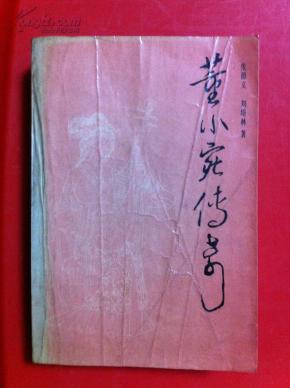 董小宛传奇
张德义 刘培林 著